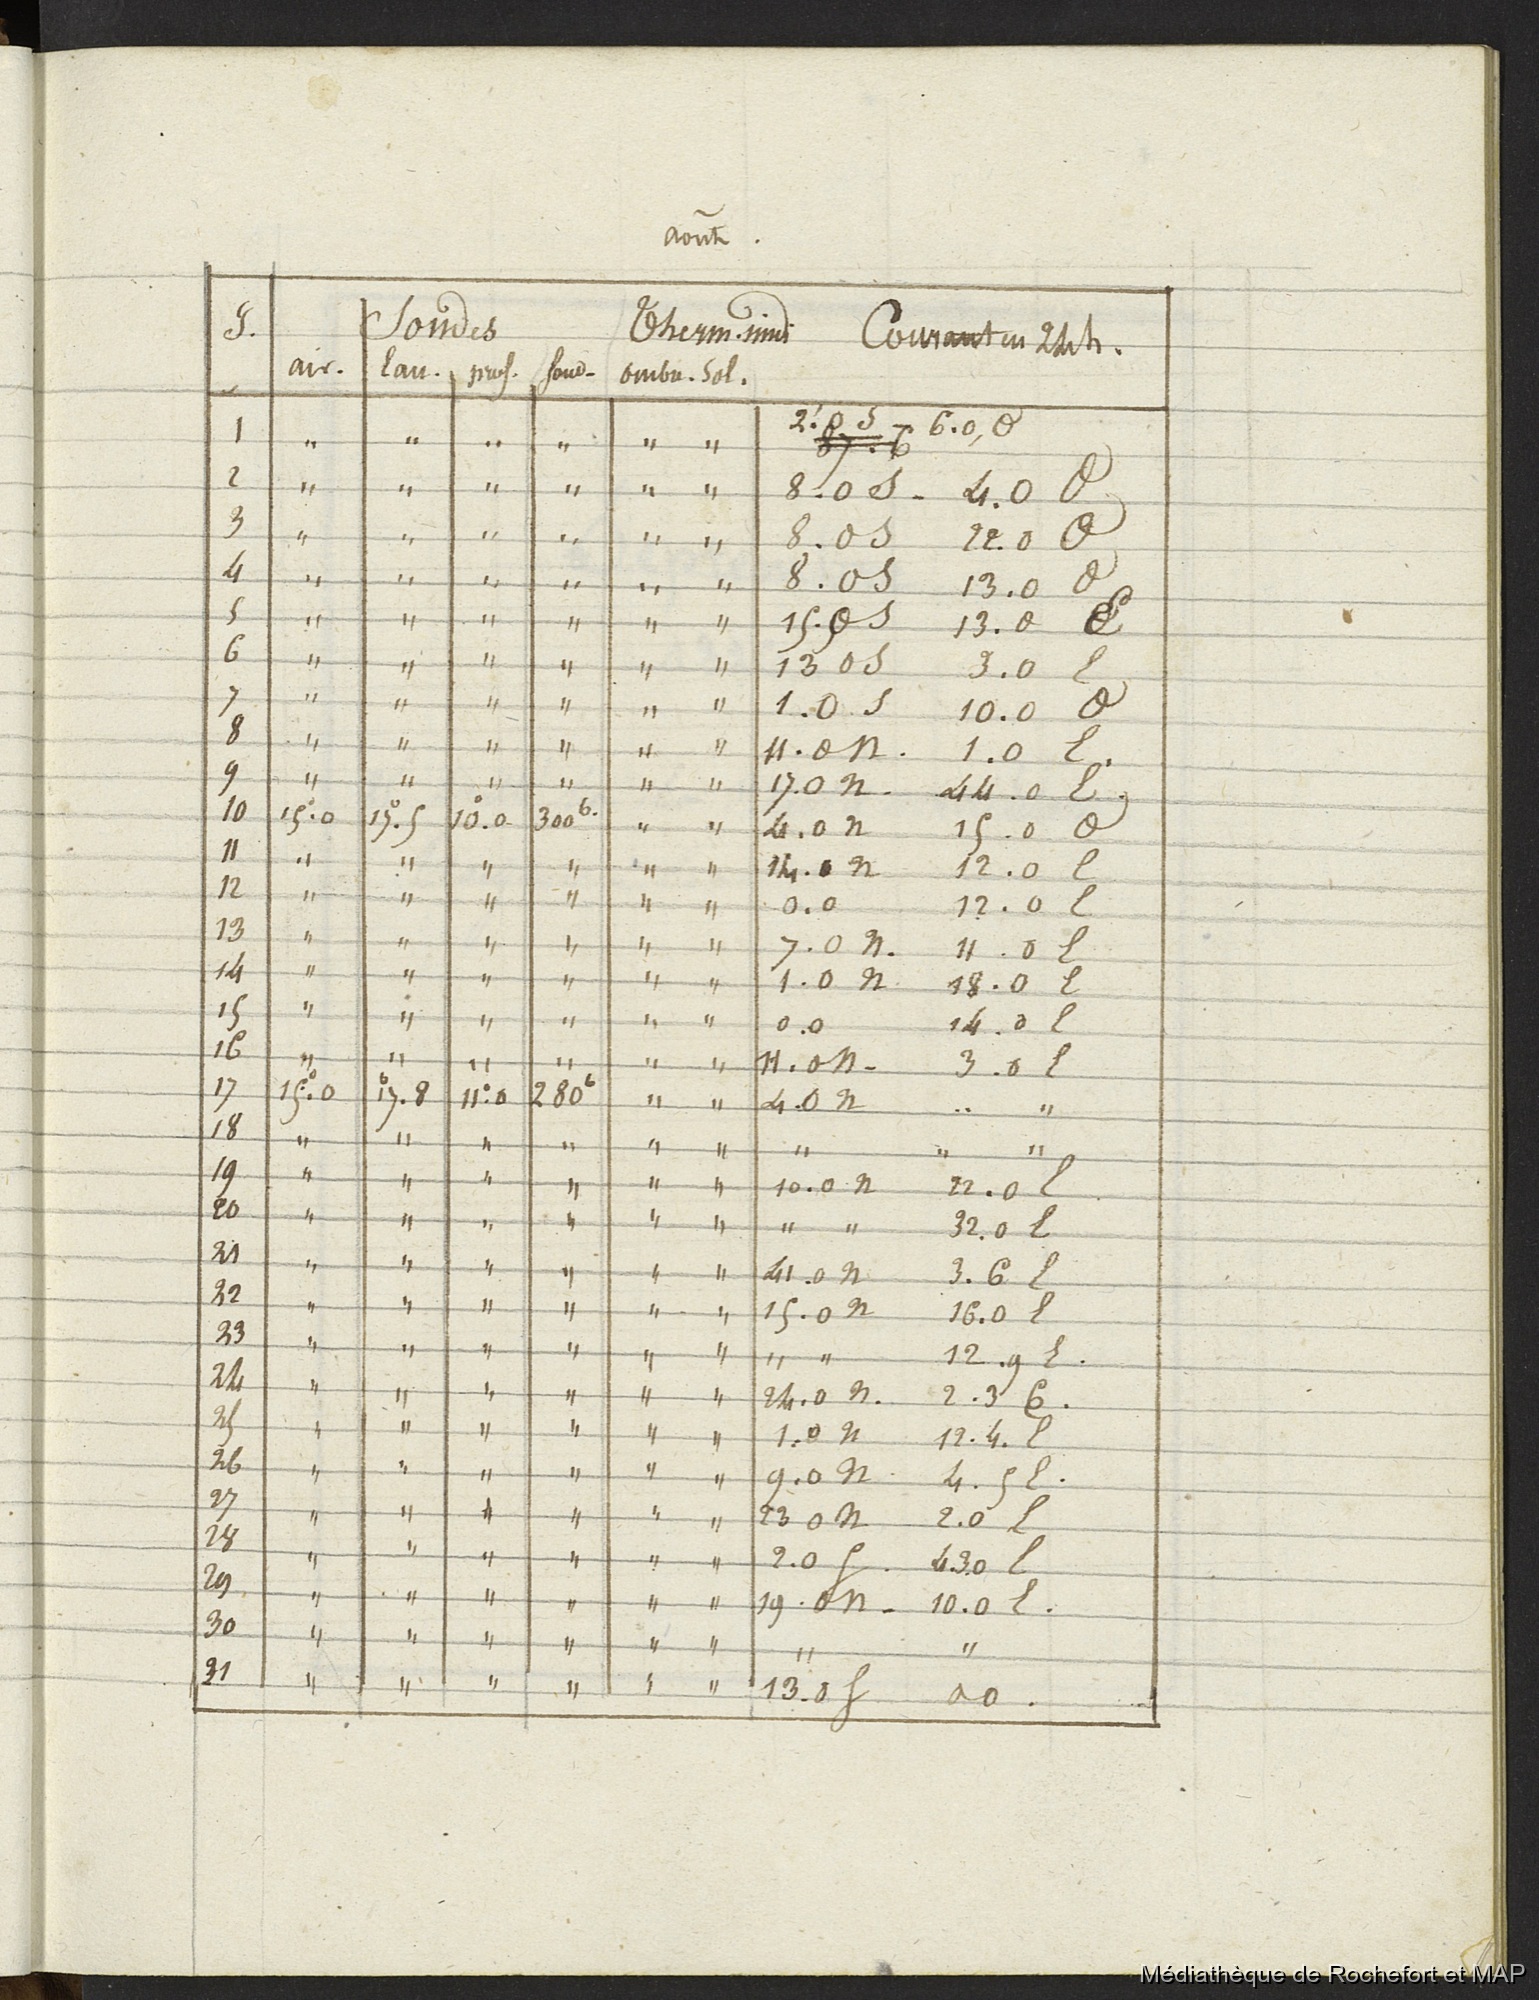 août .
J. Sondes Therm. Courant en 24h.
air. Eau. prof. fond. ombre. Sol.
1 " " " " " " 2'.0 S - 6.0, O
2 " " " " " " 8.0 S - 4.0 O
3 " " " " " " 8.0 S 22.0 O
4 " " " " " " 8.0 S 13.0 O
5 " " " " " " 15.0 S 13.0 E
6 " " " " " " 13 0 S 3.0 E
7 " " " " " " 1.0 S 10.0 O
8 " " " " " " 11.0 N. 1.0 E.
9 " " " " " " 17.0 N. 44.0 E.
10 15°.0 19°.5 10°.0 300b. " " 4.0 N 15.0 O
11 " " " " " " 14.0 N 12.0 E
12 " " " " " " 0.0 12.0 E
13 " " " " " " 7.0 N. 11.0 E
14 " " " " " " 1.0 N 18.0 E
15 " " " " " " 0.0 14.0 E
16 " " " " " " 11.0 N- 3.0 E
17 15°.0 17°.8 11°.0 280b " " 4.0 N " "
18 " " " " " " " " "
19 " " " " " " 10.0 N 22.0 E
20 " " " " " " " " 32.0 E
21 " " " " " " 41.0 N 3.6 E
22 " " " " " " 15.0 N 16.0 E
23 " " " " " " " " 12.9 E.
24 " " " " " " 24.0 N. 2.3 E.
25 " " " " " " 1.0 N 12.4. E
26 " " " " " " 9.0 N 4.5 E.
27 " " " " " " 23 0 N 2.0 E
28 " " " " " " 2.0 S. 43.0 E
29 " " " " " " 19.0 N- 10.0 E.
30 " " " " " " " "
31 " " " " " " 13.0 S 0 0.
Médiathèque de Rochefort et MAP